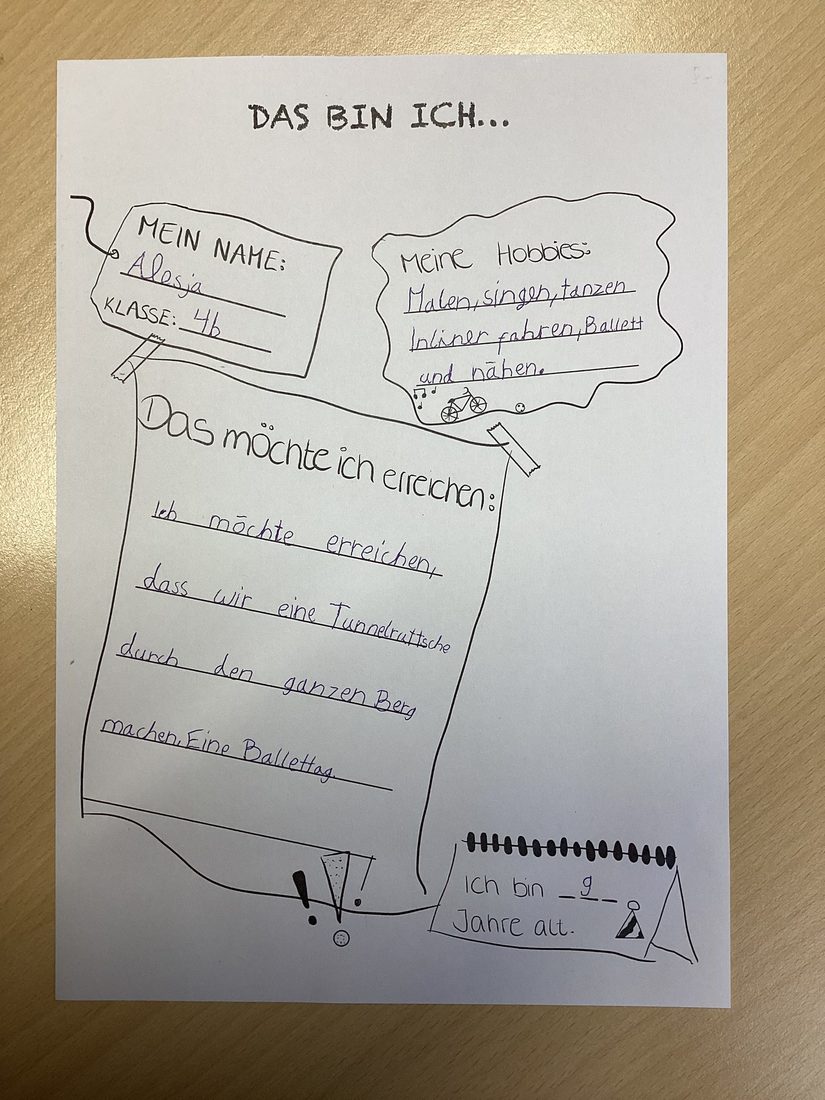 DAS BIN ICH...
MEIN NAME:
Alesja
KLASSE: 4b
Meine Hobbies:
Malen, singen, tanzen
Inliner fahren, Ballett
und nähen.
Das möchte ich erreichen:
Ich möchte erreichen,
dass wir eine Tunnelruttsche
durch den ganzen Berg
machen. Eine Ballettag
Ich bin 9
Jahre alt.